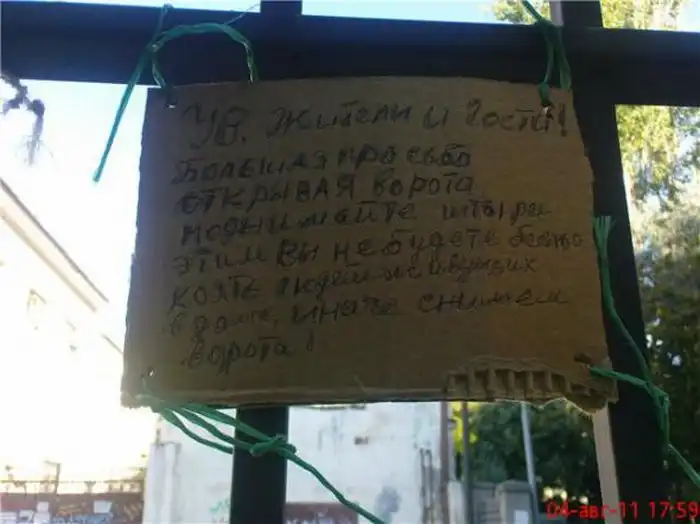 Ув. Жители и Гости!
Большая просьба
открывая ворота
поднимайте штыри
этим вы не будете беспо
коять людей живущих
в доме, иначе снимем
ворота!
04-авг-11 17:59